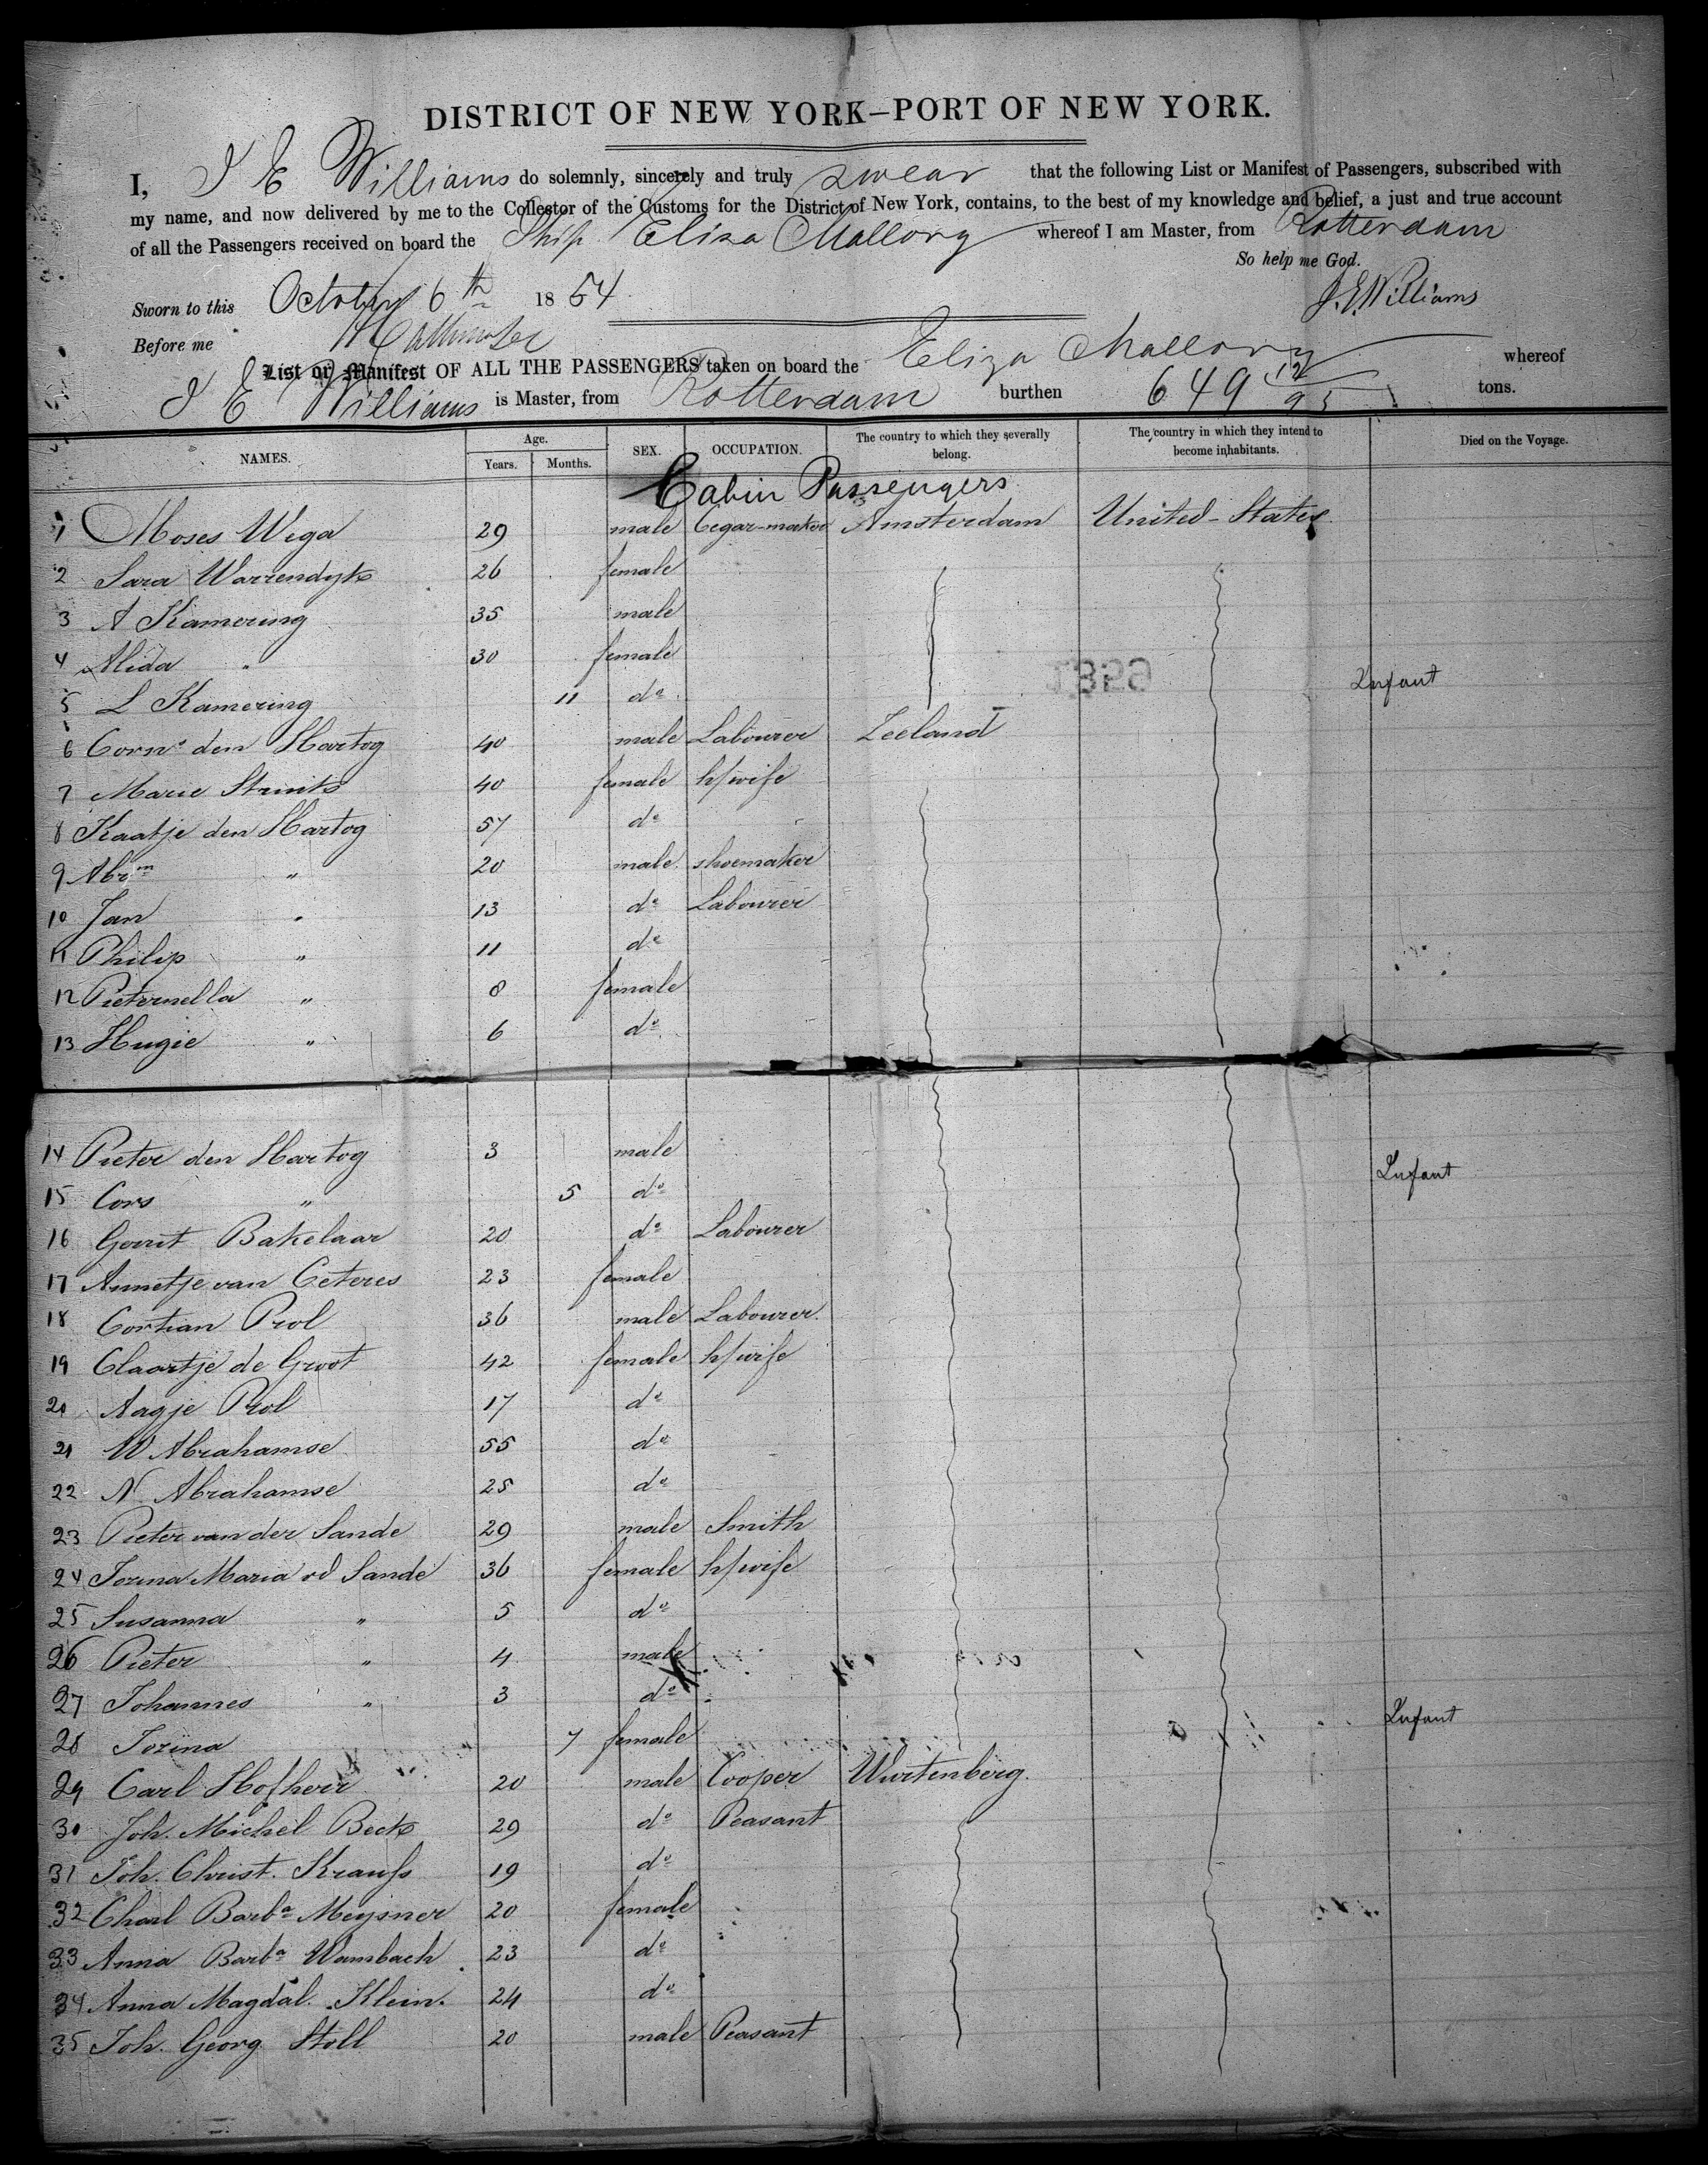 DISTRICT OF NEW YORK–PORT OF NEW YORK.
I, J E Williams do solemnly, sincerely and truly swear that the following List or Manifest of Passengers, subscribed with
my name, and now delivered by me to the Collector of the Customs for the District of New York, contains, to the best of my knowledge and belief, a just and true account
of all the Passengers received on board the Ship Eliza Mallory whereof I am Master, from Rotterdam
So help me God.
Sworn to this October 6th 1854 J. E. Williams
Before me
List or Manifest OF ALL THE PASSENGERS taken on board the Eliza Mallory whereof
J E Williams is Master, from Rotterdam burthen 649 12/95 tons.
NAMES. Age. Years. Months. SEX. OCCUPATION. The country to which they severally belong. The country in which they intend to become inhabitants. Died on the Voyage.
Cabin Passengers
1 Moses Wega 29 male Cegar-maker Amsterdam United-States
2 Sara Warrendyk 26 female
3 A Kamering 35 male
4 Alida " 30 female
5 L Kamering 11 do Infant
6 Corns den Hartog 40 male Labourer Zeeland
7 Marie Struits 40 female h/wife
8 Kaatje den Hartog 57 do
9 Abrm " 20 male shoemaker
10 Jan " 13 do Labourer
11 Philip " 11 do
12 Pieternella " 8 female
13 Hugie " 6 do
14 Pieter den Hartog 3 male
15 Cors " 5 do Infant
16 Gerrit Bakelaar 20 do Labourer
17 Annetje van Ceteres 23 female
18 Cortian Prol 36 male Labourer
19 Claartje de Groot 42 female h/wife
20 Aagje Prol 17 do
21 W Abrahamse 55 do
22 N Abrahamse 25 do
23 Pieter van der Sande 29 male Smith
24 Jozina Maria vd Sande 36 female h/wife
25 Susanna " 5 do
26 Pieter " 4 male
27 Johannes " 3 do
28 Jozina 7 female Infant
29 Carl Hofherr 20 male Cooper Wurtenberg.
30 Joh. Michel Beck 29 do Peasant
31 Joh. Christ. Krauss 19 do
32 Charl Barba Meysner 20 female
33 Anna Barba Wambach 23 do
34 Anna Magdal. Klein. 24 do
35 Joh. Georg Stoll 20 male Peasant